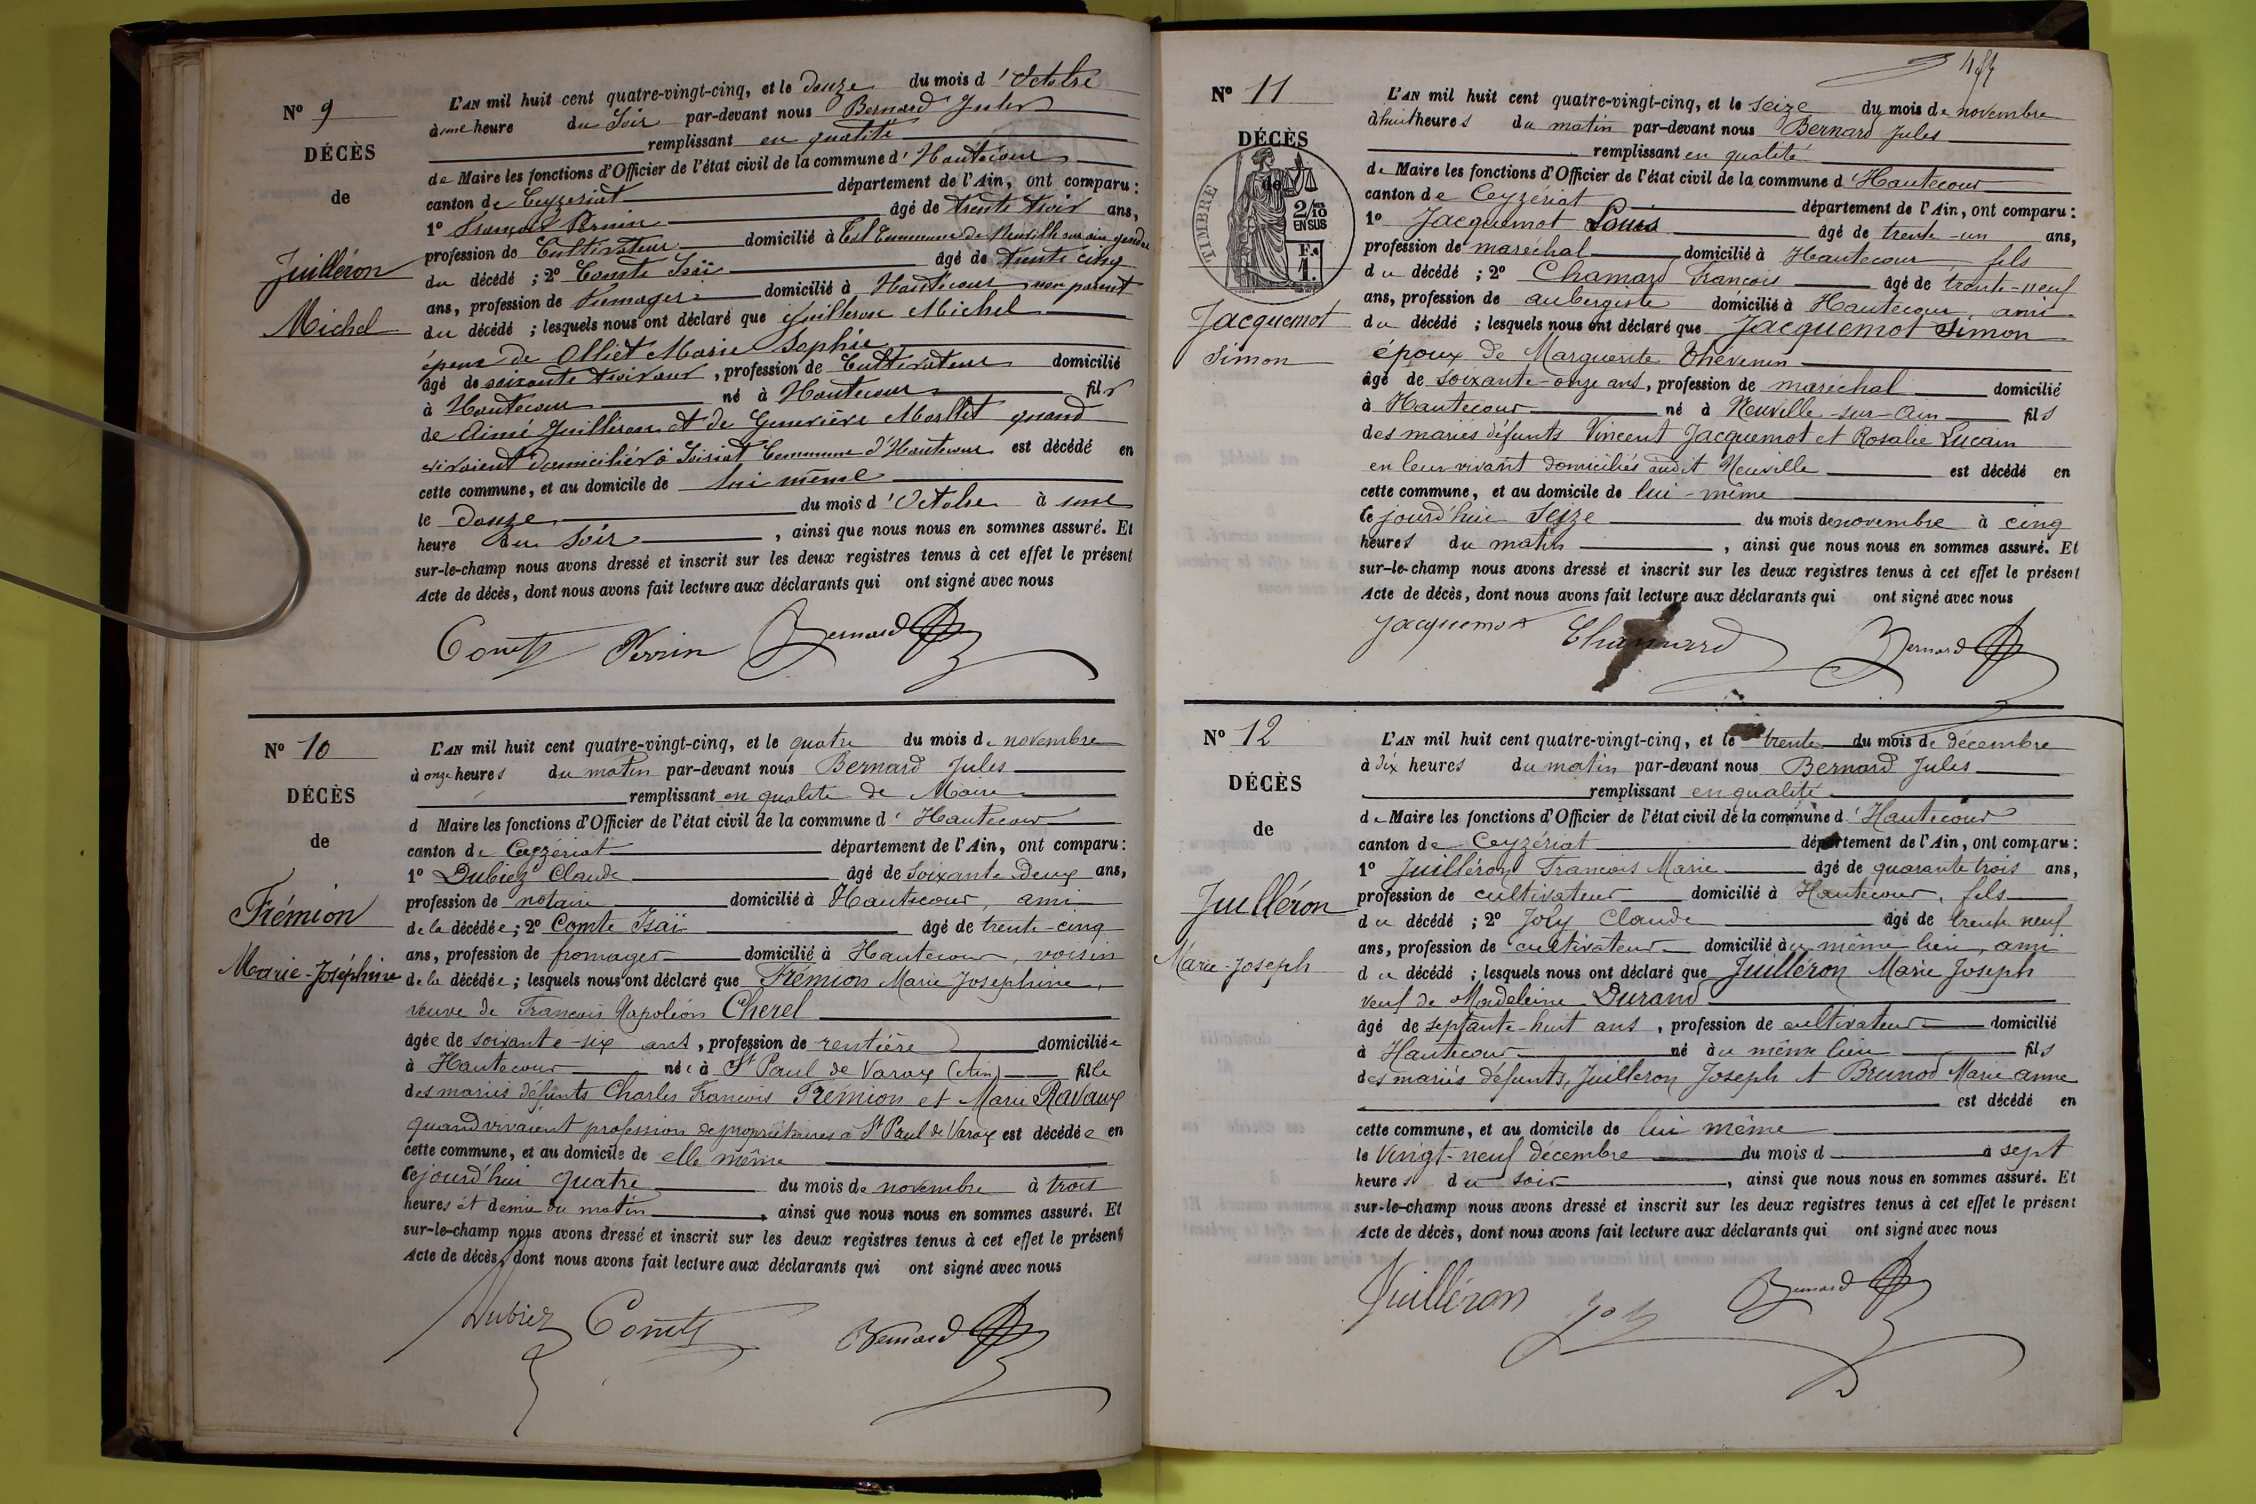 N° 9
DÉCÈS
de
Juilléron
Michel
L'AN mil huit cent quatre-vingt-cinq, et le douze du mois d'Octobre
à une heure du Soir par-devant nous Bernard Jules
remplissant en qualité
de Maire les fonctions d'Officier de l'état civil de la commune d'Hautecour
canton de Ceyzeriat département de l'Ain, ont comparu :
1° François Perrin âgé de trente trois ans,
profession de Cultivateur domicilié à Commune de Neuville sur ain gendre
du décédé ; 2° Comte Isaï âgé de trente cinq
ans, profession de fromager domicilié à Hautecour non parent
du décédé ; lesquels nous ont déclaré que Juilleron Michel
époux de Olliet Marie Sophie
âgé de soixante trois ans, profession de Cultivateur domicilié
à Hautecour né à Hautecour fils
de Aimé Juilleron et de Genevière Morllet quand
vivaient domiciliés à Commune d'Hautecour est décédé en
cette commune, et au domicile de lui même
le douze du mois d'Octobre à une
heure du Soir, ainsi que nous nous en sommes assuré. Et
sur-le-champ nous avons dressé et inscrit sur les deux registres tenus à cet effet le présent
Acte de décès, dont nous avons fait lecture aux déclarants qui ont signé avec nous
Comte Perrin Bernard
N° 10
DÉCÈS
de
Frémion
Marie-Joséphine
L'AN mil huit cent quatre-vingt-cinq, et le quatre du mois de novembre
à onze heures du matin par-devant nous Bernard Jules
remplissant en qualité de Maire
d Maire les fonctions d'Officier de l'état civil de la commune d'Hautecour
canton de Ceyzériat département de l'Ain, ont comparu :
1° Dubiez Claude âgé de soixante deux ans,
profession de notaire domicilié à Hautecour, ami
de la décédée ; 2° Comte Isaï âgé de trente-cinq
ans, profession de fromager domicilié à Hautecour, voisin
de la décédée ; lesquels nous ont déclaré que Frémion Marie Josephine,
veuve de François Napoléon Cherel
âgée de soixante-six ans, profession de rentière domiciliée
à Hautecour née à St Paul de Varax (Ain) fille
des mariés défunts Charles François Frémion et Marie Ravaux
quand vivaient profession de propriétaires à St Paul de Varax est décédée en
cette commune, et au domicile de elle même
cejourd'hui quatre du mois de novembre à trois
heures et demie du matin, ainsi que nous nous en sommes assuré. Et
sur-le-champ nous avons dressé et inscrit sur les deux registres tenus à cet effet le présent
Acte de décès, dont nous avons fait lecture aux déclarants qui ont signé avec nous
Dubiez Comte Bernard
N° 11
DÉCÈS
de
TIMBRE
2/10
EN SUS
F.c
1.
Jacquemot
Simon
L'AN mil huit cent quatre-vingt-cinq, et le seize du mois de novembre
à huit heures du matin par-devant nous Bernard Jules
remplissant en qualité
de Maire les fonctions d'Officier de l'état civil de la commune d'Hautecour
canton de Ceyzériat département de l'Ain, ont comparu :
1° Jacquemot Louis âgé de trente-un ans,
profession de maréchal domicilié à Hautecour fils
du décédé ; 2° Chamard François âgé de trente-neuf
ans, profession de aubergiste domicilié à Hautecour, ami
du décédé ; lesquels nous ont déclaré que Jacquemot Simon
époux de Marguerite Thévenin
âgé de soixante-onze ans, profession de maréchal domicilié
à Hautecour né à Neuville-sur-Ain fils
des mariés défunts Vincent Jacquemot et Rosalie Lucain
en leur vivant domiciliés audit Neuville est décédé en
cette commune, et au domicile de lui-même
cejourd'hui seize du mois de novembre à cinq
heures du matin, ainsi que nous nous en sommes assuré. Et
sur-le-champ nous avons dressé et inscrit sur les deux registres tenus à cet effet le présent
Acte de décès, dont nous avons fait lecture aux déclarants qui ont signé avec nous
Jacquemot Chamard Bernard
N° 12
DÉCÈS
de
Juilléron
Marie-Joseph
L'AN mil huit cent quatre-vingt-cinq, et le trente du mois de décembre
à dix heures du matin par-devant nous Bernard Jules
remplissant en qualité
de Maire les fonctions d'Officier de l'état civil de la commune d'Hautecour
canton de Ceyzériat département de l'Ain, ont comparu :
1° Juilléron François Marie âgé de quarante trois ans,
profession de cultivateur domicilié à Hautecour, fils
du décédé ; 2° Joly Claude âgé de trente neuf
ans, profession de cultivateur domicilié au même lieu, ami
du décédé ; lesquels nous ont déclaré que Juilléron Marie Joseph
veuf de Madeleine Durand
âgé de septante-huit ans, profession de cultivateur domicilié
à Hautecour né au même lieu fils
des mariés défunts, Juilleron Joseph et Brunod Marie anne
est décédé en
cette commune, et au domicile de lui même
le vingt-neuf décembre du mois d à sept
heures du soir, ainsi que nous nous en sommes assuré. Et
sur-le-champ nous avons dressé et inscrit sur les deux registres tenus à cet effet le présent
Acte de décès, dont nous avons fait lecture aux déclarants qui ont signé avec nous
Juilléron Joly Bernard